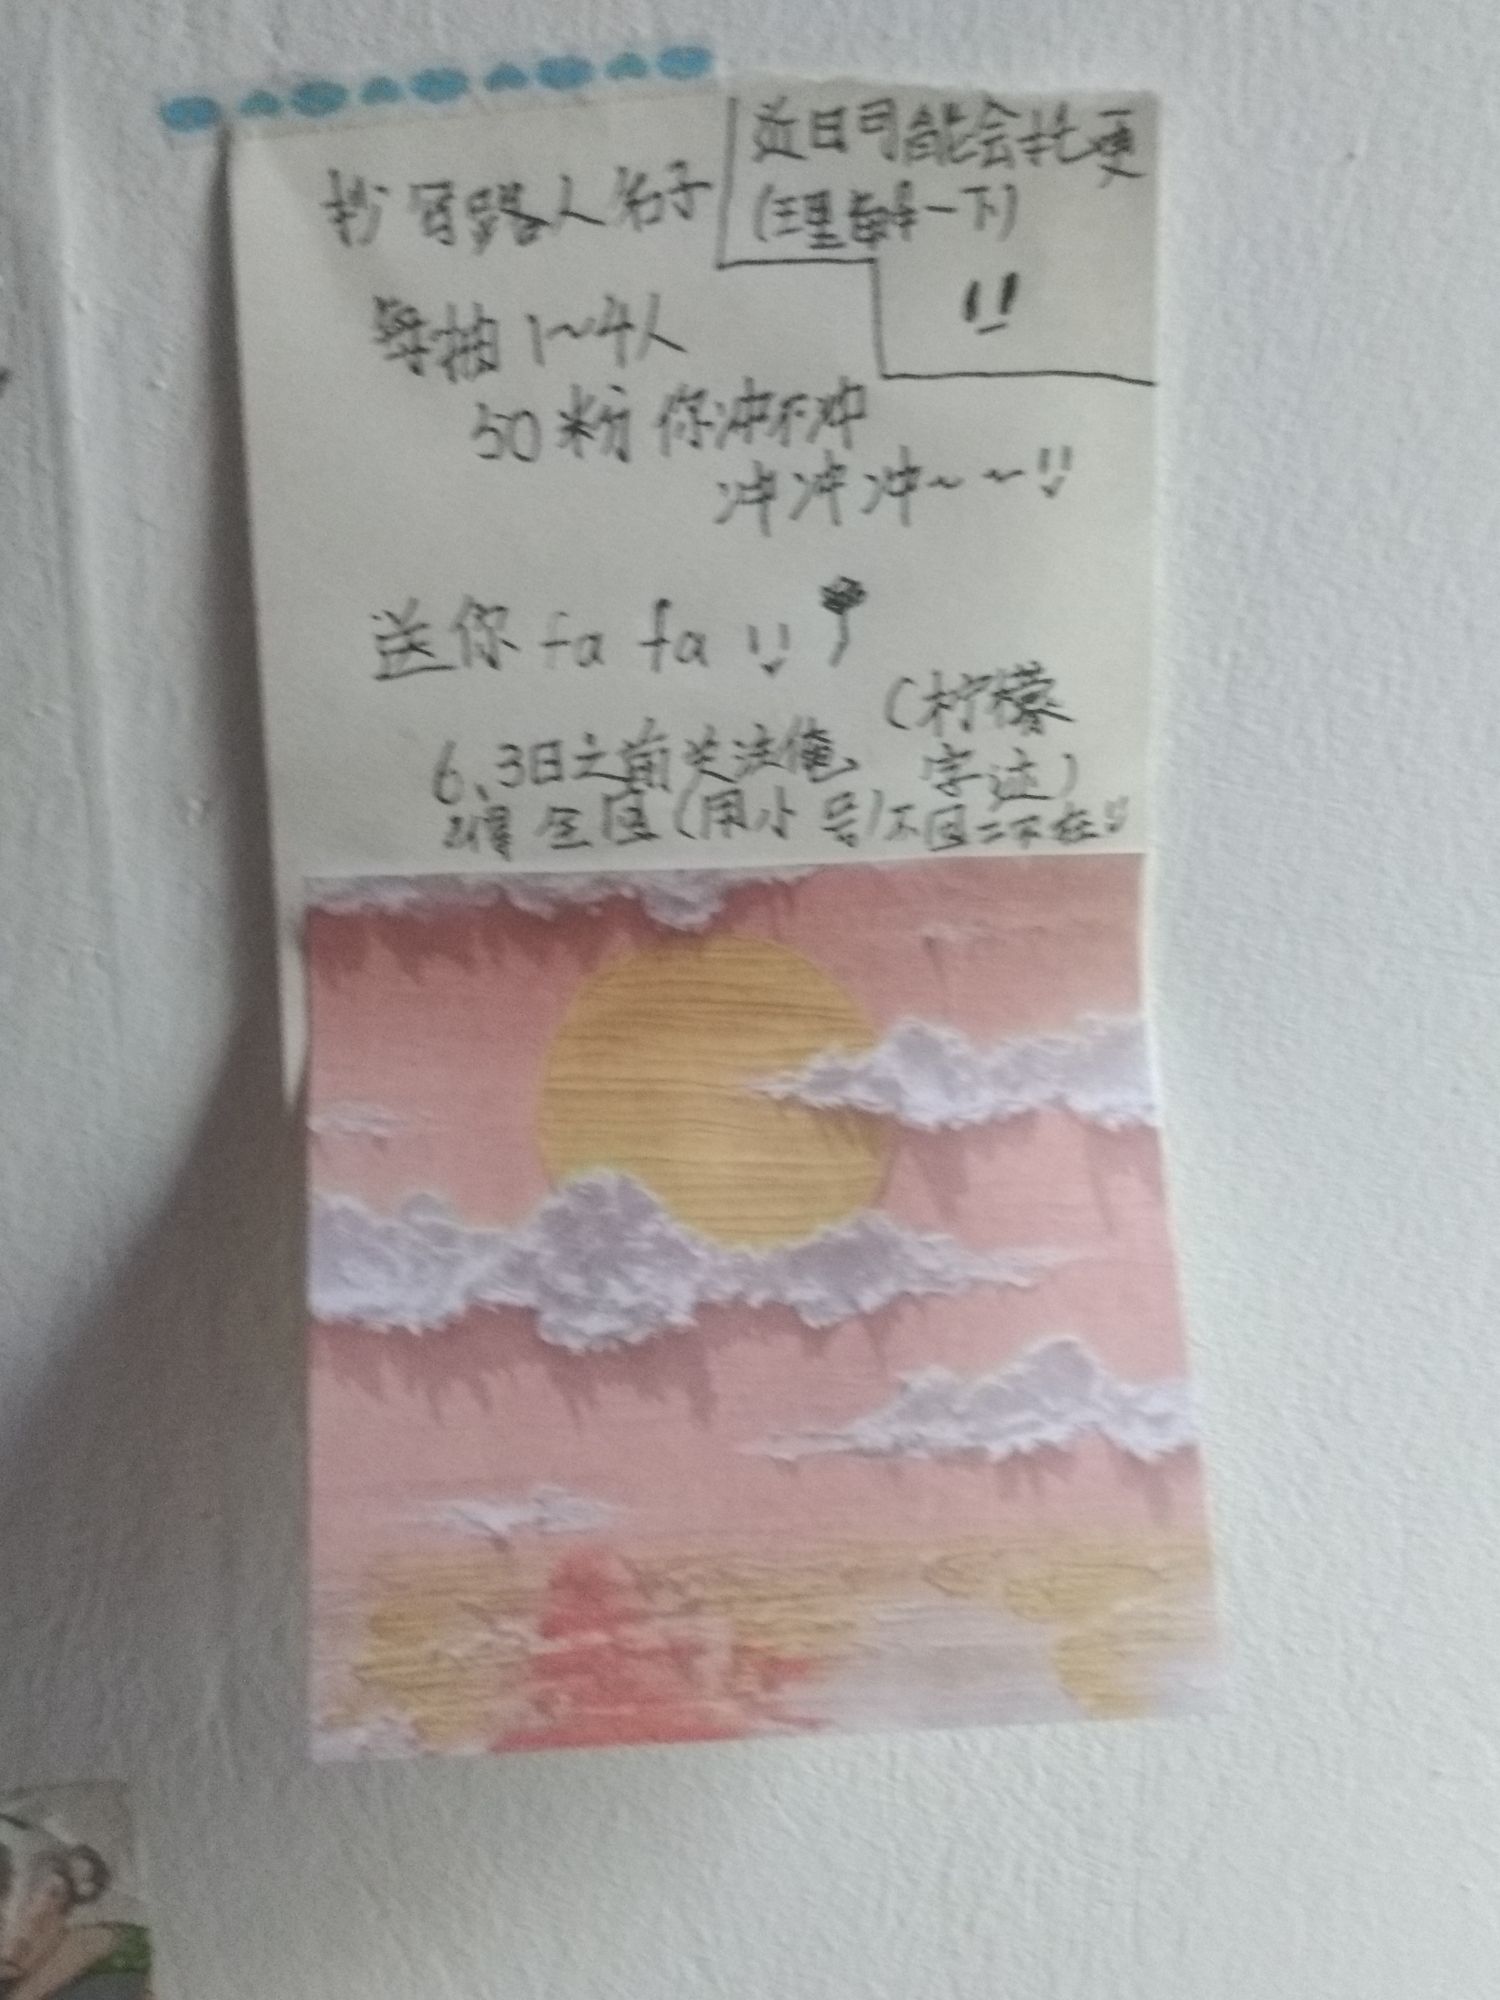 抄写路人名子
近日可能会托更
(理解一下)
每抽1~4人
50粉你冲不冲
冲冲冲~~
送你fa fa
(柠檬
字迹)
6、3日之前关注俺
得全回(用小号)不回=不在